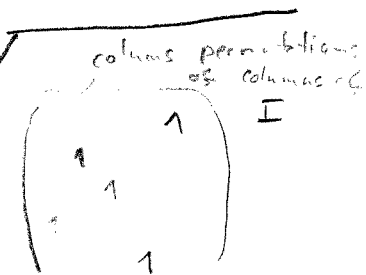 colums permutations
of columns of
I
1
1
1
1
1